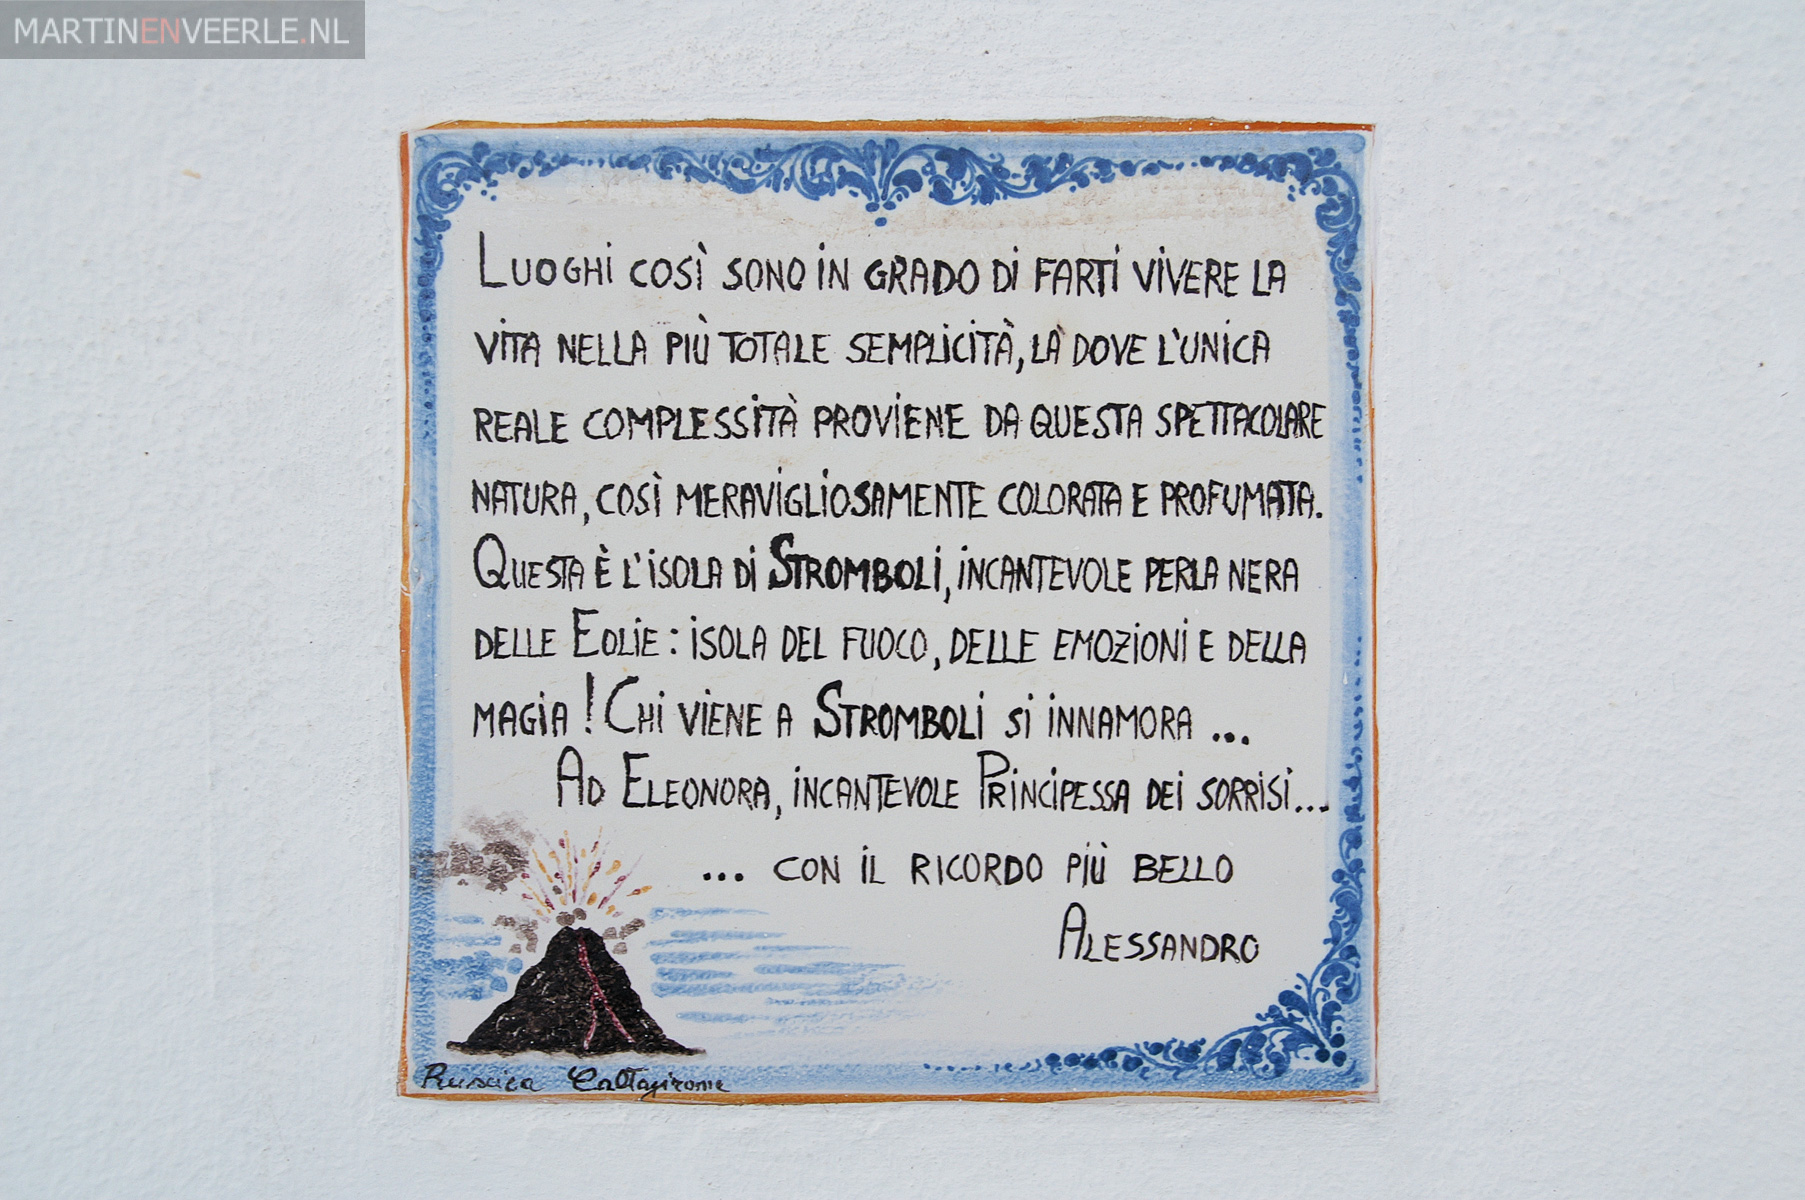 MARTINENVEERLE.NL
LUOGHI COSÌ SONO IN GRADO DI FARTI VIVERE LA
VITA NELLA PIÙ TOTALE SEMPLICITÀ, LÀ DOVE L'UNICA
REALE COMPLESSITÀ PROVIENE DA QUESTA SPETTACOLARE
NATURA, COSÌ MERAVIGLIOSAMENTE COLORATA E PROFUMATA.
QUESTA È L'ISOLA DI STROMBOLI, INCANTEVOLE PERLA NERA
DELLE EOLIE: ISOLA DEL FUOCO, DELLE EMOZIONI E DELLA
MAGIA! CHI VIENE A STROMBOLI SI INNAMORA ...
AD ELEONORA, INCANTEVOLE PRINCIPESSA DEI SORRISI...
... CON IL RICORDO PIÙ BELLO
ALESSANDRO
Ruscica Caltagirone